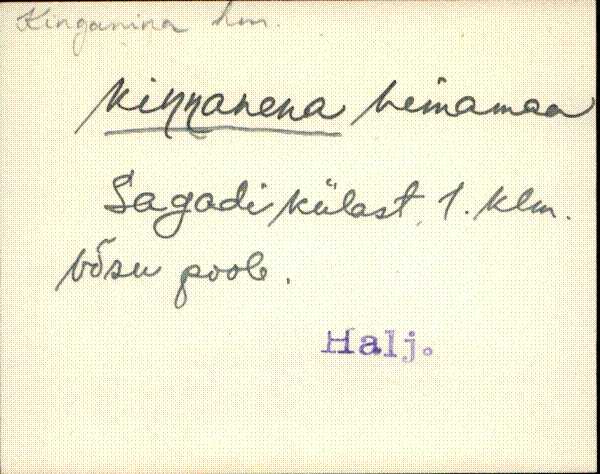 Kinganina hm.
kiŋŋanena heinamaa
Sagadi külast, 1. klm.
Võsu poole.
Halj.